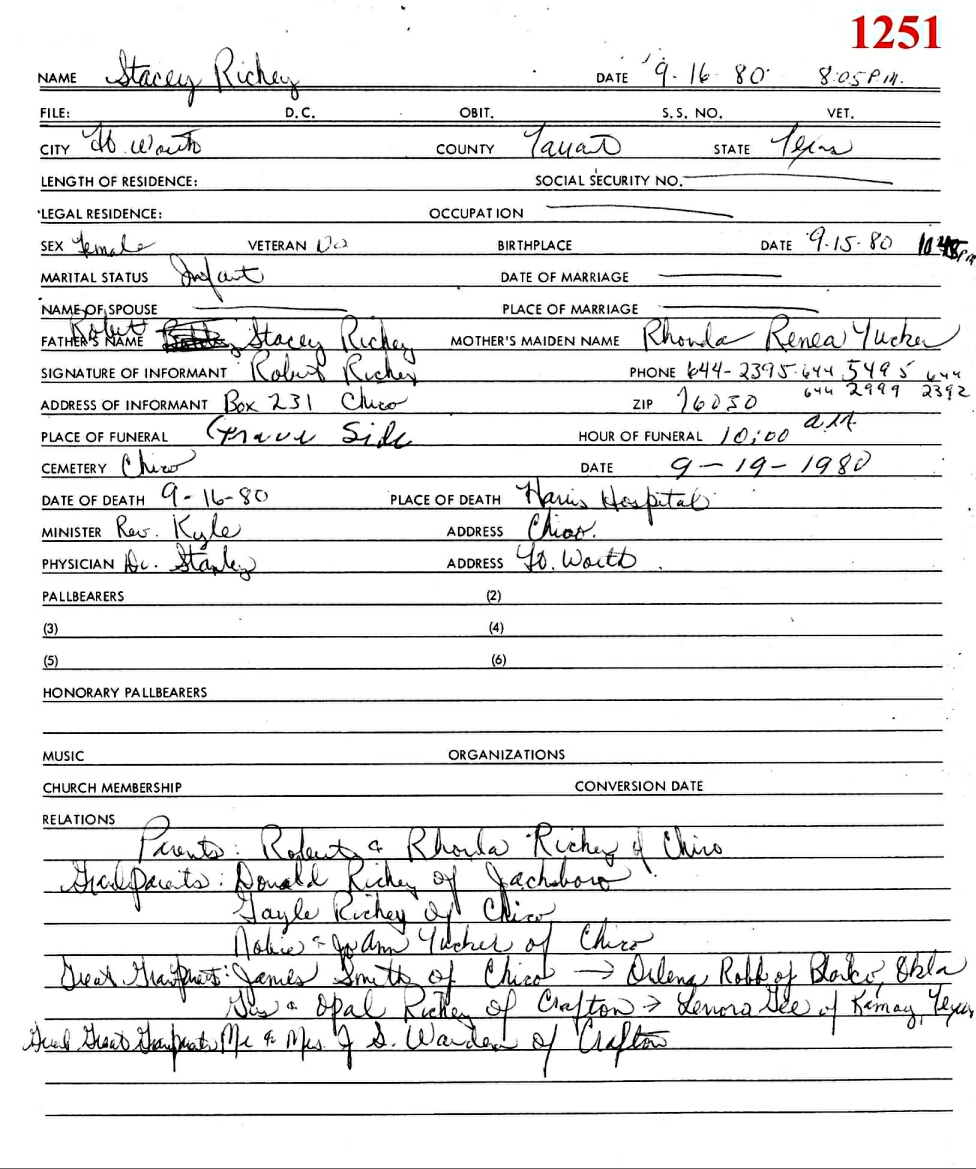 1251
NAME Stacey Richey DATE 9-16-80 8:05 P.M.
FILE: D.C. OBIT. S.S. NO. VET.
CITY Ft. Worth COUNTY Tarrant STATE Texas
LENGTH OF RESIDENCE: SOCIAL SECURITY NO.
LEGAL RESIDENCE: OCCUPATION
SEX Female VETERAN No BIRTHPLACE DATE 9-15-80 PM
MARITAL STATUS Infant DATE OF MARRIAGE
NAME OF SPOUSE PLACE OF MARRIAGE
FATHER'S NAME Robert Stacey Richey MOTHER'S MAIDEN NAME Rhonda Renea Tucker
SIGNATURE OF INFORMANT Robert Richey PHONE 644-2395 644 5495 644
ADDRESS OF INFORMANT Box 231 Chico ZIP 76030 644 2999 2392
PLACE OF FUNERAL Grave Side HOUR OF FUNERAL 10:00 a.m.
CEMETERY Chico DATE 9-19-1980
DATE OF DEATH 9-16-80 PLACE OF DEATH Harris Hospital
MINISTER Rev. Kyle ADDRESS Chico.
PHYSICIAN Dr. Stanley ADDRESS Ft. Worth.
PALLBEARERS (2)
(3) (4)
(5) (6)
HONORARY PALLBEARERS
MUSIC ORGANIZATIONS
CHURCH MEMBERSHIP CONVERSION DATE
RELATIONS
Parents: Robert & Rhonda Richey of Chico
Grandparents: Donald Richey of Jacksboro
Gayle Richey of Chico
& JoAnn Tucker of Chico
Great Grandparents: James Smith of Chico → Robb of Okla
& Opal Richey of Crafton → Lenora Gee of Kamay, Texas
Great Great Grandparents Mr & Mrs. J S. Warden of Crafton